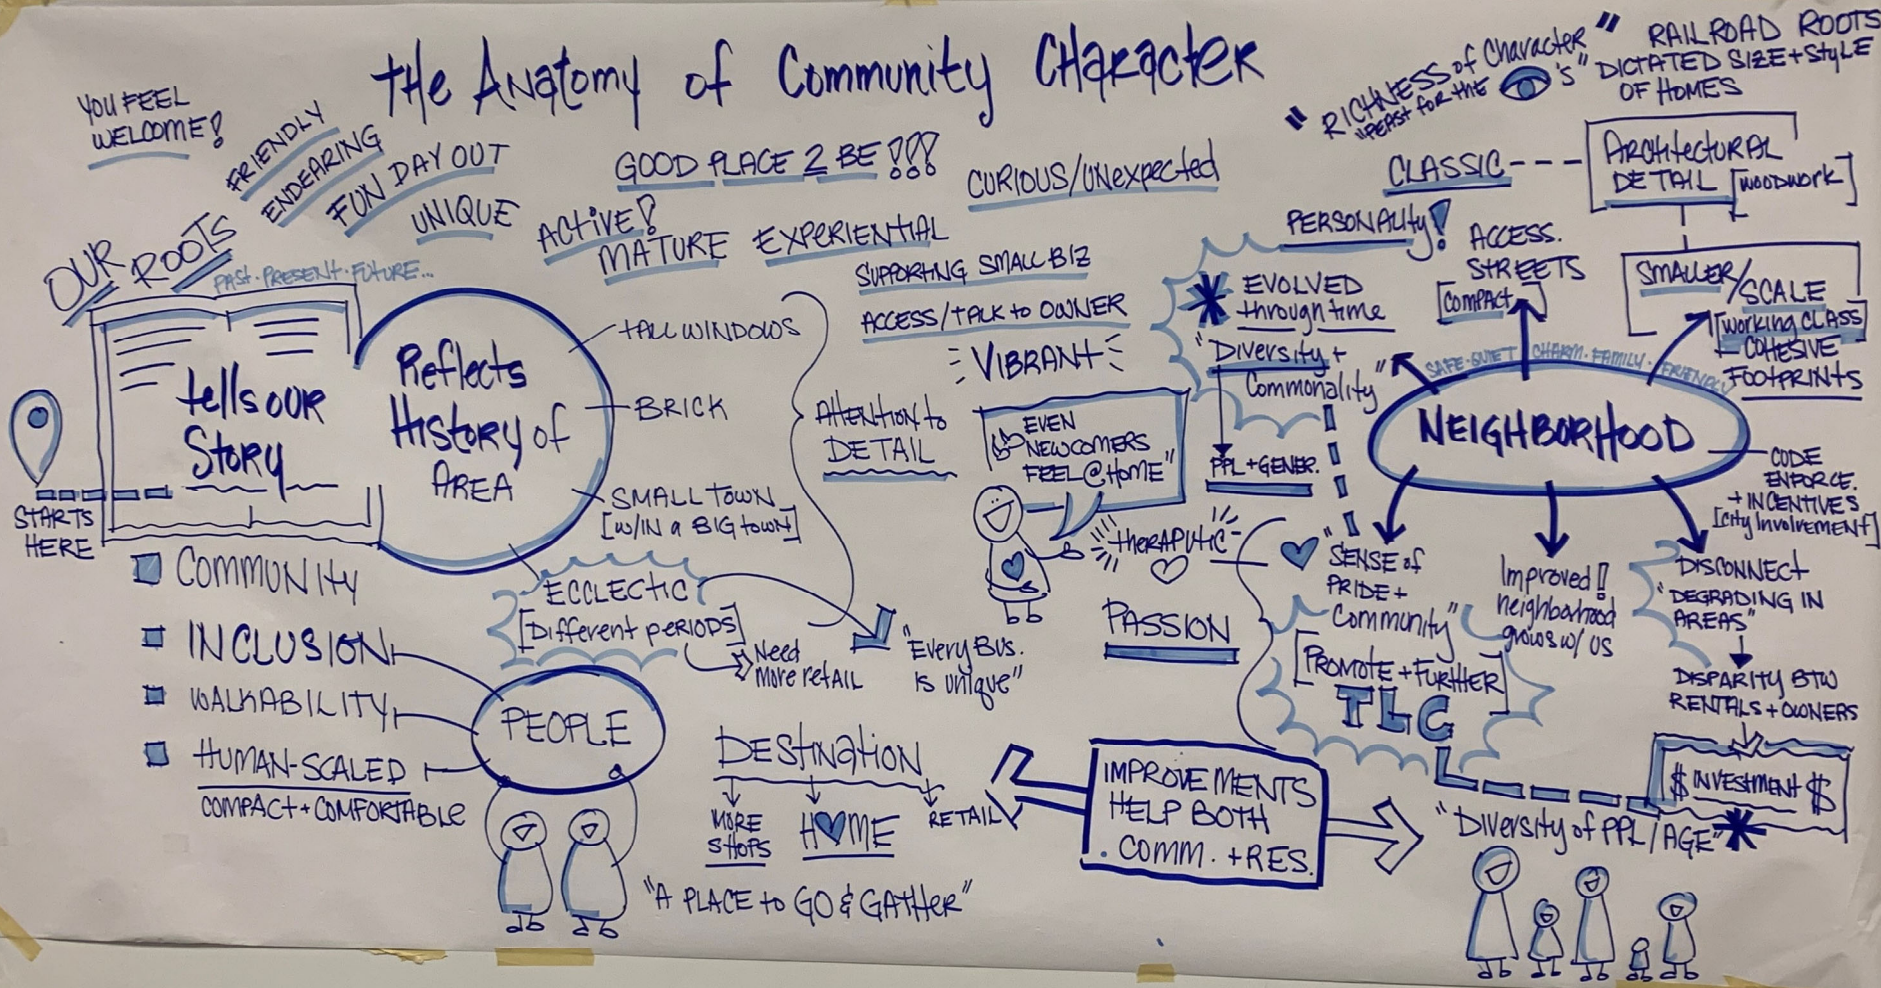 The Anatomy of Community Character
YOU FEEL
WELCOME!
FRIENDLY
ENDEARING
FUN DAY OUT
UNIQUE
GOOD PLACE 2 BE!!!
ACTIVE!
MATURE
EXPERIENTIAL
CURIOUS/UNexpected
SUPPORTING SMALL BIZ
ACCESS/TALK to OWNER
VIBRANT
OUR ROOTS
PAST·PRESENT·FUTURE...
tells OUR
Story
STARTS
HERE
Reflects
History of
AREA
TALL WINDOWS
BRICK
SMALL TOWN
[w/IN a BIG town]
ATTENTION to
DETAIL
ECCLECTIC
[Different periods]
Need
More retail
"Every Bus.
is unique"
COMMUNITY
INCLUSION
WALKABILITY
HUMAN-SCALED
COMPACT + COMFORTABLE
PEOPLE
DESTINATION
MORE
SHOPS
HOME
RETAIL
"A PLACE to GO & GATHER"
EVEN
NEWCOMERS
FEEL @ HOME"
THERAPUTIC
PASSION
IMPROVEMENTS
HELP BOTH
. COMM. + RES.
"RICHNESS of Character"
"FEAST for the 's"
RAILROAD ROOTS
DICTATED SIZE + STYLE
OF HOMES
CLASSIC
ARCHITECTURAL
DETAIL [WOODWORK]
PERSONALITY!
ACCESS.
STREETS
[COMPACT]
SMALLER/SCALE
[working CLASS]
COHESIVE
FOOTPRINTS
EVOLVED
through time
"Diversity +
Commonality"
PPL + GENER.
SAFE·QUIET·CHARM·FAMILY·FRIENDLY
NEIGHBORHOOD
CODE
ENFORCE.
+ INCENTIVES
[City Involvement]
"SENSE of
PRIDE +
Community"
[PROMOTE + FURTHER]
TLC
Improved!
neighborhood
grows w/ US
DISCONNECT
"DEGRADING IN
AREAS"
DISPARITY BTW
RENTALS + OWNERS
$ INVESTMENT $
"Diversity of PPL/AGE"